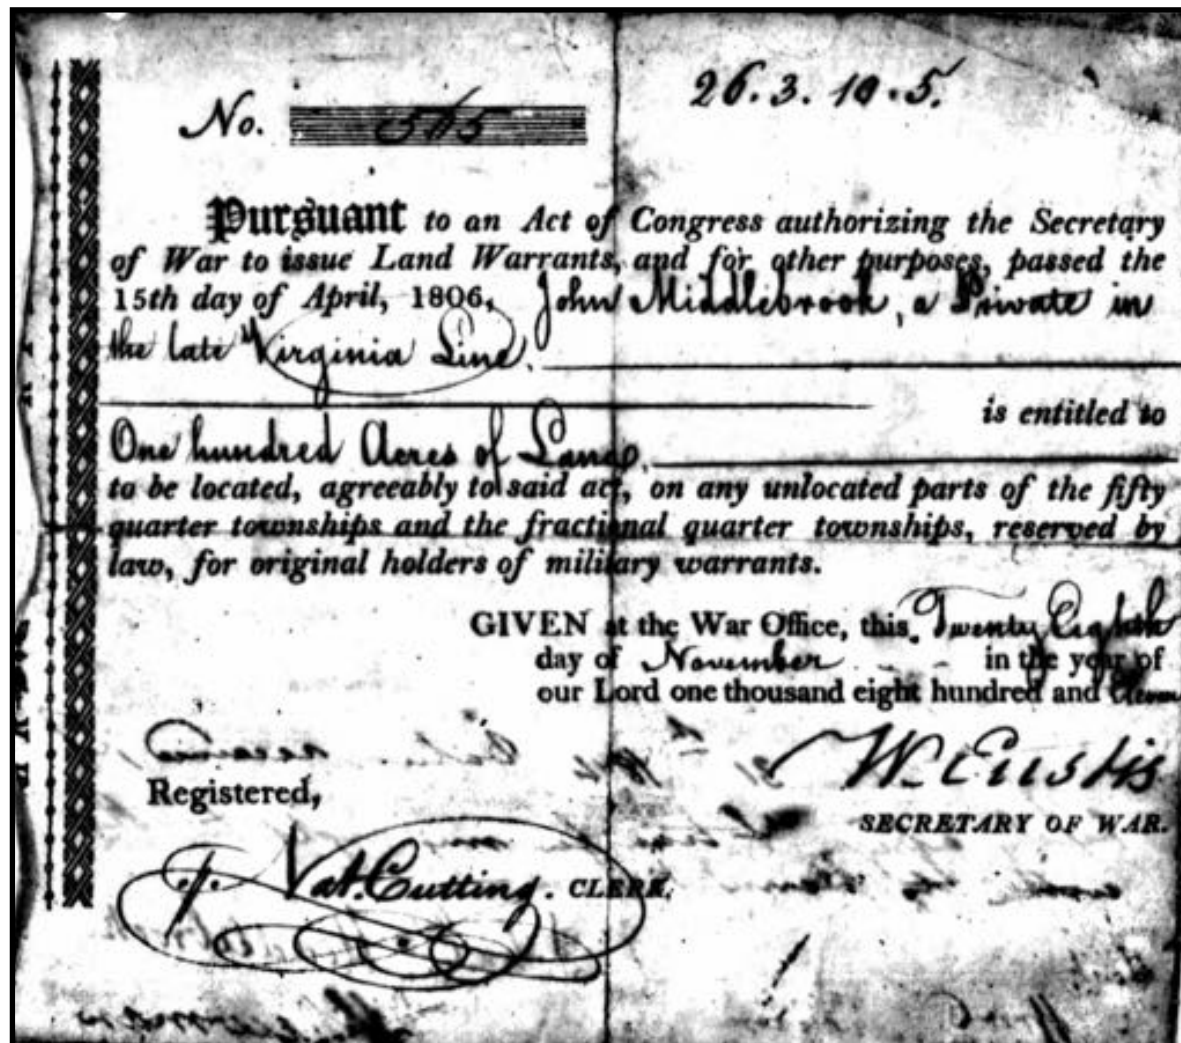 26.3.10.5.
No. 565
Pursuant to an Act of Congress authorizing the Secretary
of War to issue Land Warrants, and for other purposes, passed the
15th day of April, 1806, John Middlebrook, a Private in
the late Virginia Line.
is entitled to
One hundred Acres of Land.
to be located, agreeably to said act, on any unlocated parts of the fifty
quarter townships and the fractional quarter townships, reserved by
law, for original holders of military warrants.
GIVEN at the War Office, this Twenty Eighth
day of November in the year of
our Lord one thousand eight hundred and Eleven
W. Eustis
Registered,
SECRETARY OF WAR.
Nat. Cutting. CLERK.